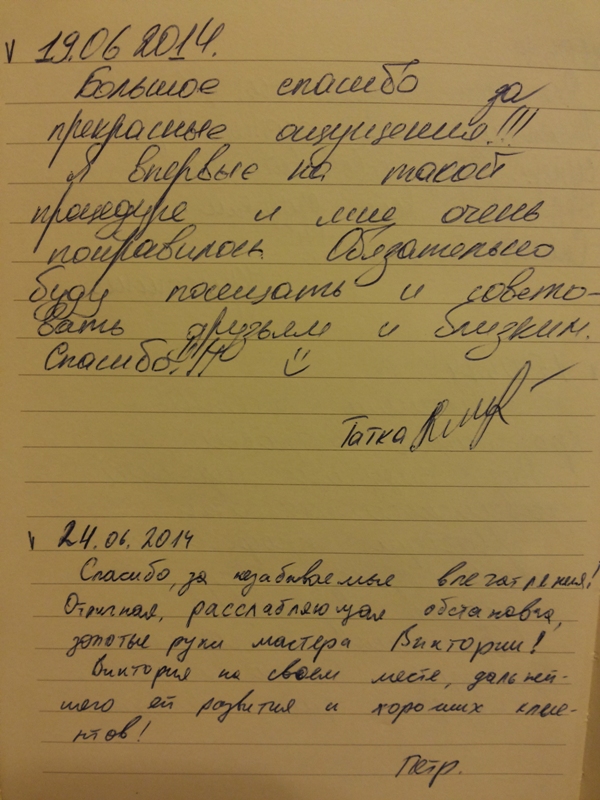 v 19.06 2014.
Большое спасибо за
прекрасные ощущения!!!
Я впервые на такой
процедуре и мне очень
понравилось. Обязательно
буду посещать и советo-
вать друзьям и близким.
Спасибо!!!
Татка
v 24.06.2014
Спасибо, за незабываемые впечатления!
Отличная, расслабляющая обстановка,
золотые руки мастера Виктории!
Виктория на своем месте, дальней-
шего ей развития и хороших клие-
нтов!
Петр.